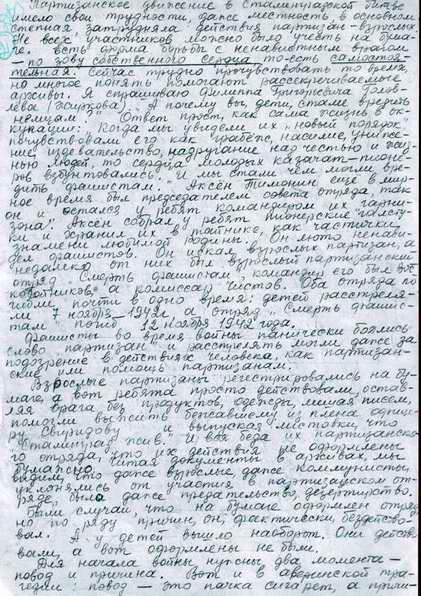 Партизанское движение в Сталинградской битве
имело свои трудности, даже местность, в основном
степная затрудняла действия партизан-взрослых.
Не всех участников можно было учесть на бума-
ге. Есть форма борьбы с ненавистным врагом
– по зову собственного сердца то-есть самостоя-
тельная. Сейчас трудно прочувствовать то время
но многое понять помогают рассекречиваемые
архивы. Я спрашиваю Филиппа Григорьевича
"А почему вы, дети, стали вредить
немцам?" Ответ прост, как сама жизнь в ок-
купации: "Когда мы увидели их "новый порядок"
почувствовали его как грабёж, насилие, униже-
ние, издевательство, надругание над честью и жиз-
нью людей, то сердца молодых казачат-пионе-
ров взбунтовались. И мы стали чем могли вре-
дить фашистам." Аксён Тимонин ещё в мир-
ное время был председателем совета отряда, так
он и остался у ребят командиром их "гарни-
зона". Аксён собрал у ребят пионерские галсту-
ки и хранил их в как частички
знамени любимой Родины. Он люто ненави-
дел фашистов. Он искал взрослых партизан, а
недалеко от них был взрослый партизанский
отряд "Смерть фашистам" командир его был
а комиссар Чистов. Оба отряда по-
гибли почти в одно время: детей расстреля-
ли 7 ноября 1942г а отряд "Смерть фашис-
там" погиб 12 ноября 1942 года.
Фашисты во время войны панически боялись
слово партизан и расстрелять могли даже за
подозрение в действиях человека, как партизан-
ские или помощь партизанам.
Взрослые партизаны регистрировались на бу-
маге, а вот ребята просто действовали, остав-
ляя врага без продуктов, одежды, лишая писем,
помогли выжить бежавшему из плена офице-
ру и выпуская листовки, что
"Сталинград жив." И вся беда их партизанско-
го отряда, что их действия не оформлены
бумажно. Читая документы в архивах, мы
видим, что даже взрослые, даже коммунисты,
уклонялись от участия в партизанском от-
ряде, было даже предательство, дезертирство.
Были случаи, что на бумаге оформлен отряд
но по ряду причин, он, фактически, бездейство-
вал. А у детей вышло наоборот. Они действо-
вали, а вот оформлены не были.
Для начала войны нужны два момента –
повод и причина. Вот и в аверинской тра-
гедии: повод – это пачка сигарет, а причи-